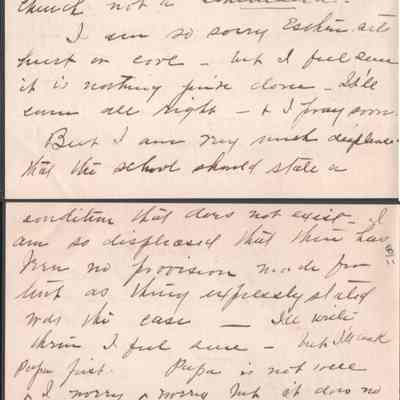 church not a
I am so sorry Esther acts
hurt or cove - but I feel sure
it is nothing you've done - It'll
come all right - & I pray soon.
But I am very much displeased
that the school should state a
condition that does not exist - I
am so displeased that there has
been no provision made for
but as they expressly stated
was the case - I'll write
them I feel sure - but I'll ask
Papa first. Papa is not well
& I worry & worry but it does no